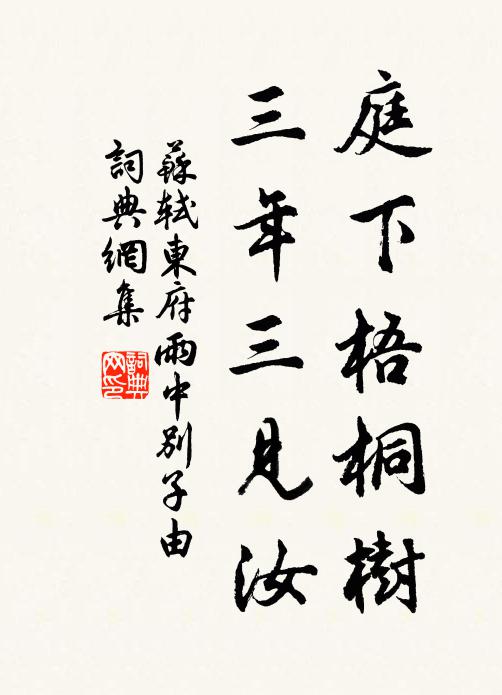 庭下梧桐樹
三年三見汝
蘇軾東府雨中別子由
詞典網集
詞典网印